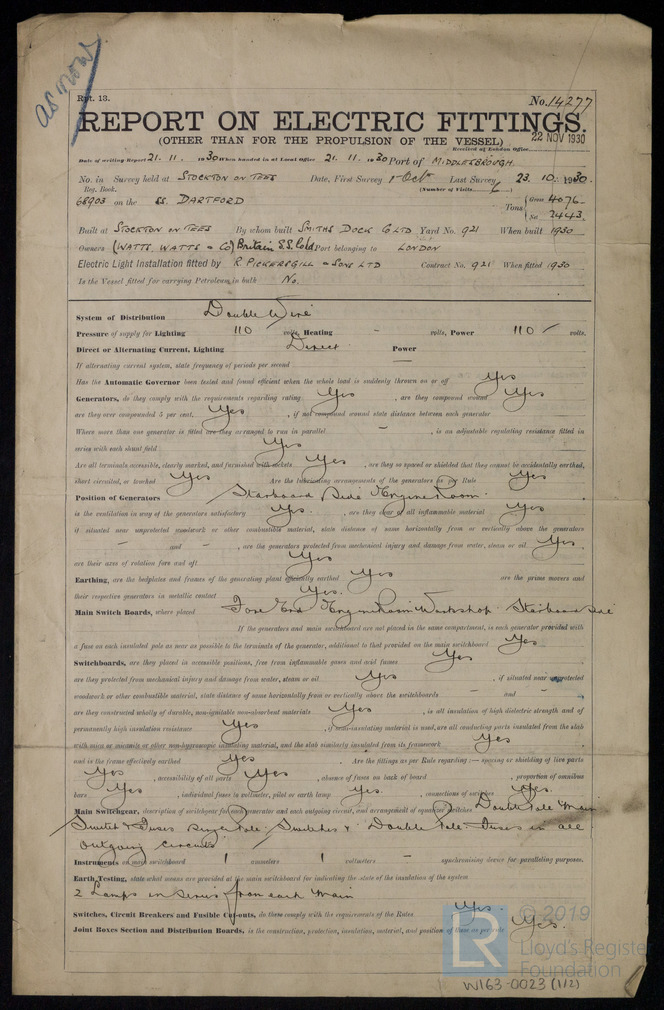 as now
Rpt. 13.
No. 14277
REPORT ON ELECTRIC FITTINGS.
(OTHER THAN FOR THE PROPULSION OF THE VESSEL)
22 NOV 1930
Received at London Office
Date of writing Report 21. 11. 1930 When handed in at Local Office 21. 11. 1930 Port of MIDDLESBROUGH.
No. in Survey held at STOCKTON ON TEES Date, First Survey 1st Oct Last Survey 23. 10. 1930.
Reg. Book.
(Number of Visits 6)
68903 on the SS. DARTFORD
Tons { Gross 4076
Net 2443
Built at STOCKTON ON TEES By whom built SMITHS DOCK Co LTD Yard No. 921 When built 1930
Owners (WATTS, WATTS & Co) Britain S.S. Co Ld Port belonging to LONDON
Electric Light Installation fitted by R. PICKERSGILL & SONS LTD Contract No. 921 When fitted 1930
Is the Vessel fitted for carrying Petroleum in bulk No.
System of Distribution Double Wire
Pressure of supply for Lighting 110 volts, Heating - volts, Power 110 volts.
Direct or Alternating Current, Lighting Direct Power
If alternating current system, state frequency of periods per second —
Has the Automatic Governor been tested and found efficient when the whole load is suddenly thrown on or off Yes
Generators, do they comply with the requirements regarding rating Yes, are they compound wound Yes
are they over compounded 5 per cent. Yes, if not compound wound state distance between each generator
Where more than one generator is fitted are they arranged to run in parallel -, is an adjustable regulating resistance fitted in
series with each shunt field Yes
Are all terminals accessible, clearly marked, and furnished with sockets Yes, are they so spaced or shielded that they cannot be accidentally earthed,
short circuited, or touched Yes Are the lubricating arrangements of the generators as per Rule Yes
Position of Generators Starboard Side Engine Room.
is the ventilation in way of the generators satisfactory Yes., are they clear of all inflammable material Yes
if situated near unprotected woodwork or other combustible material, state distance of same horizontally from or vertically above the generators
- and -, are the generators protected from mechanical injury and damage from water, steam or oil Yes.
are their axes of rotation fore and aft Yes
Earthing, are the bedplates and frames of the generating plant efficiently earthed Yes are the prime movers and
their respective generators in metallic contact Yes.
Main Switch Boards, where placed Fore End Engine Room Workshop Starboard Side
If the generators and main switchboard are not placed in the same compartment, is each generator provided with
a fuse on each insulated pole as near as possible to the terminals of the generator, additional to that provided on the main switchboard Yes
Switchboards, are they placed in accessible positions, free from inflammable gases and acid fumes Yes
are they protected from mechanical injury and damage from water, steam or oil Yes, if situated near unprotected
woodwork or other combustible material, state distance of same horizontally from or vertically above the switchboards - and -,
are they constructed wholly of durable, non-ignitable non-absorbent materials Yes, is all insulation of high dielectric strength and of
permanently high insulation resistance Yes, if non-insulating material is used, are all conducting parts insulated from the slab
with mica or micanite or other non-hygroscopic insulating material, and the slab similarly insulated from its framework Yes
and is the frame effectively earthed Yes. Are the fittings as per Rule regarding :— spacing or shielding of live parts
Yes, accessibility of all parts Yes, absence of fuses on back of board, proportion of omnibus
bars Yes, individual fuses to voltmeter, pilot or earth lamp Yes., connections of switches Yes.
Main Switchgear, description of switchgear for each generator and each outgoing circuit, and arrangement of equalizer switches Double Pole Main
Switch & Fuses Single Pole Switches & Double Pole Fuses in all
outgoing circuits
Instruments on main switchboard 1 ammeters 1 voltmeters - synchronising device for paralleling purposes.
Earth Testing, state what means are provided at the main switchboard for indicating the state of the insulation of the system
2 Lamps in series from each main
Switches, Circuit Breakers and Fusible Cut-outs, do these comply with the requirements of the Rules Yes.
Joint Boxes Section and Distribution Boards, is the construction, protection, insulation, material, and position of these as per rule Yes.
LR
© 2019
Lloyd's Register
Foundation
W163-0023 (1/2)